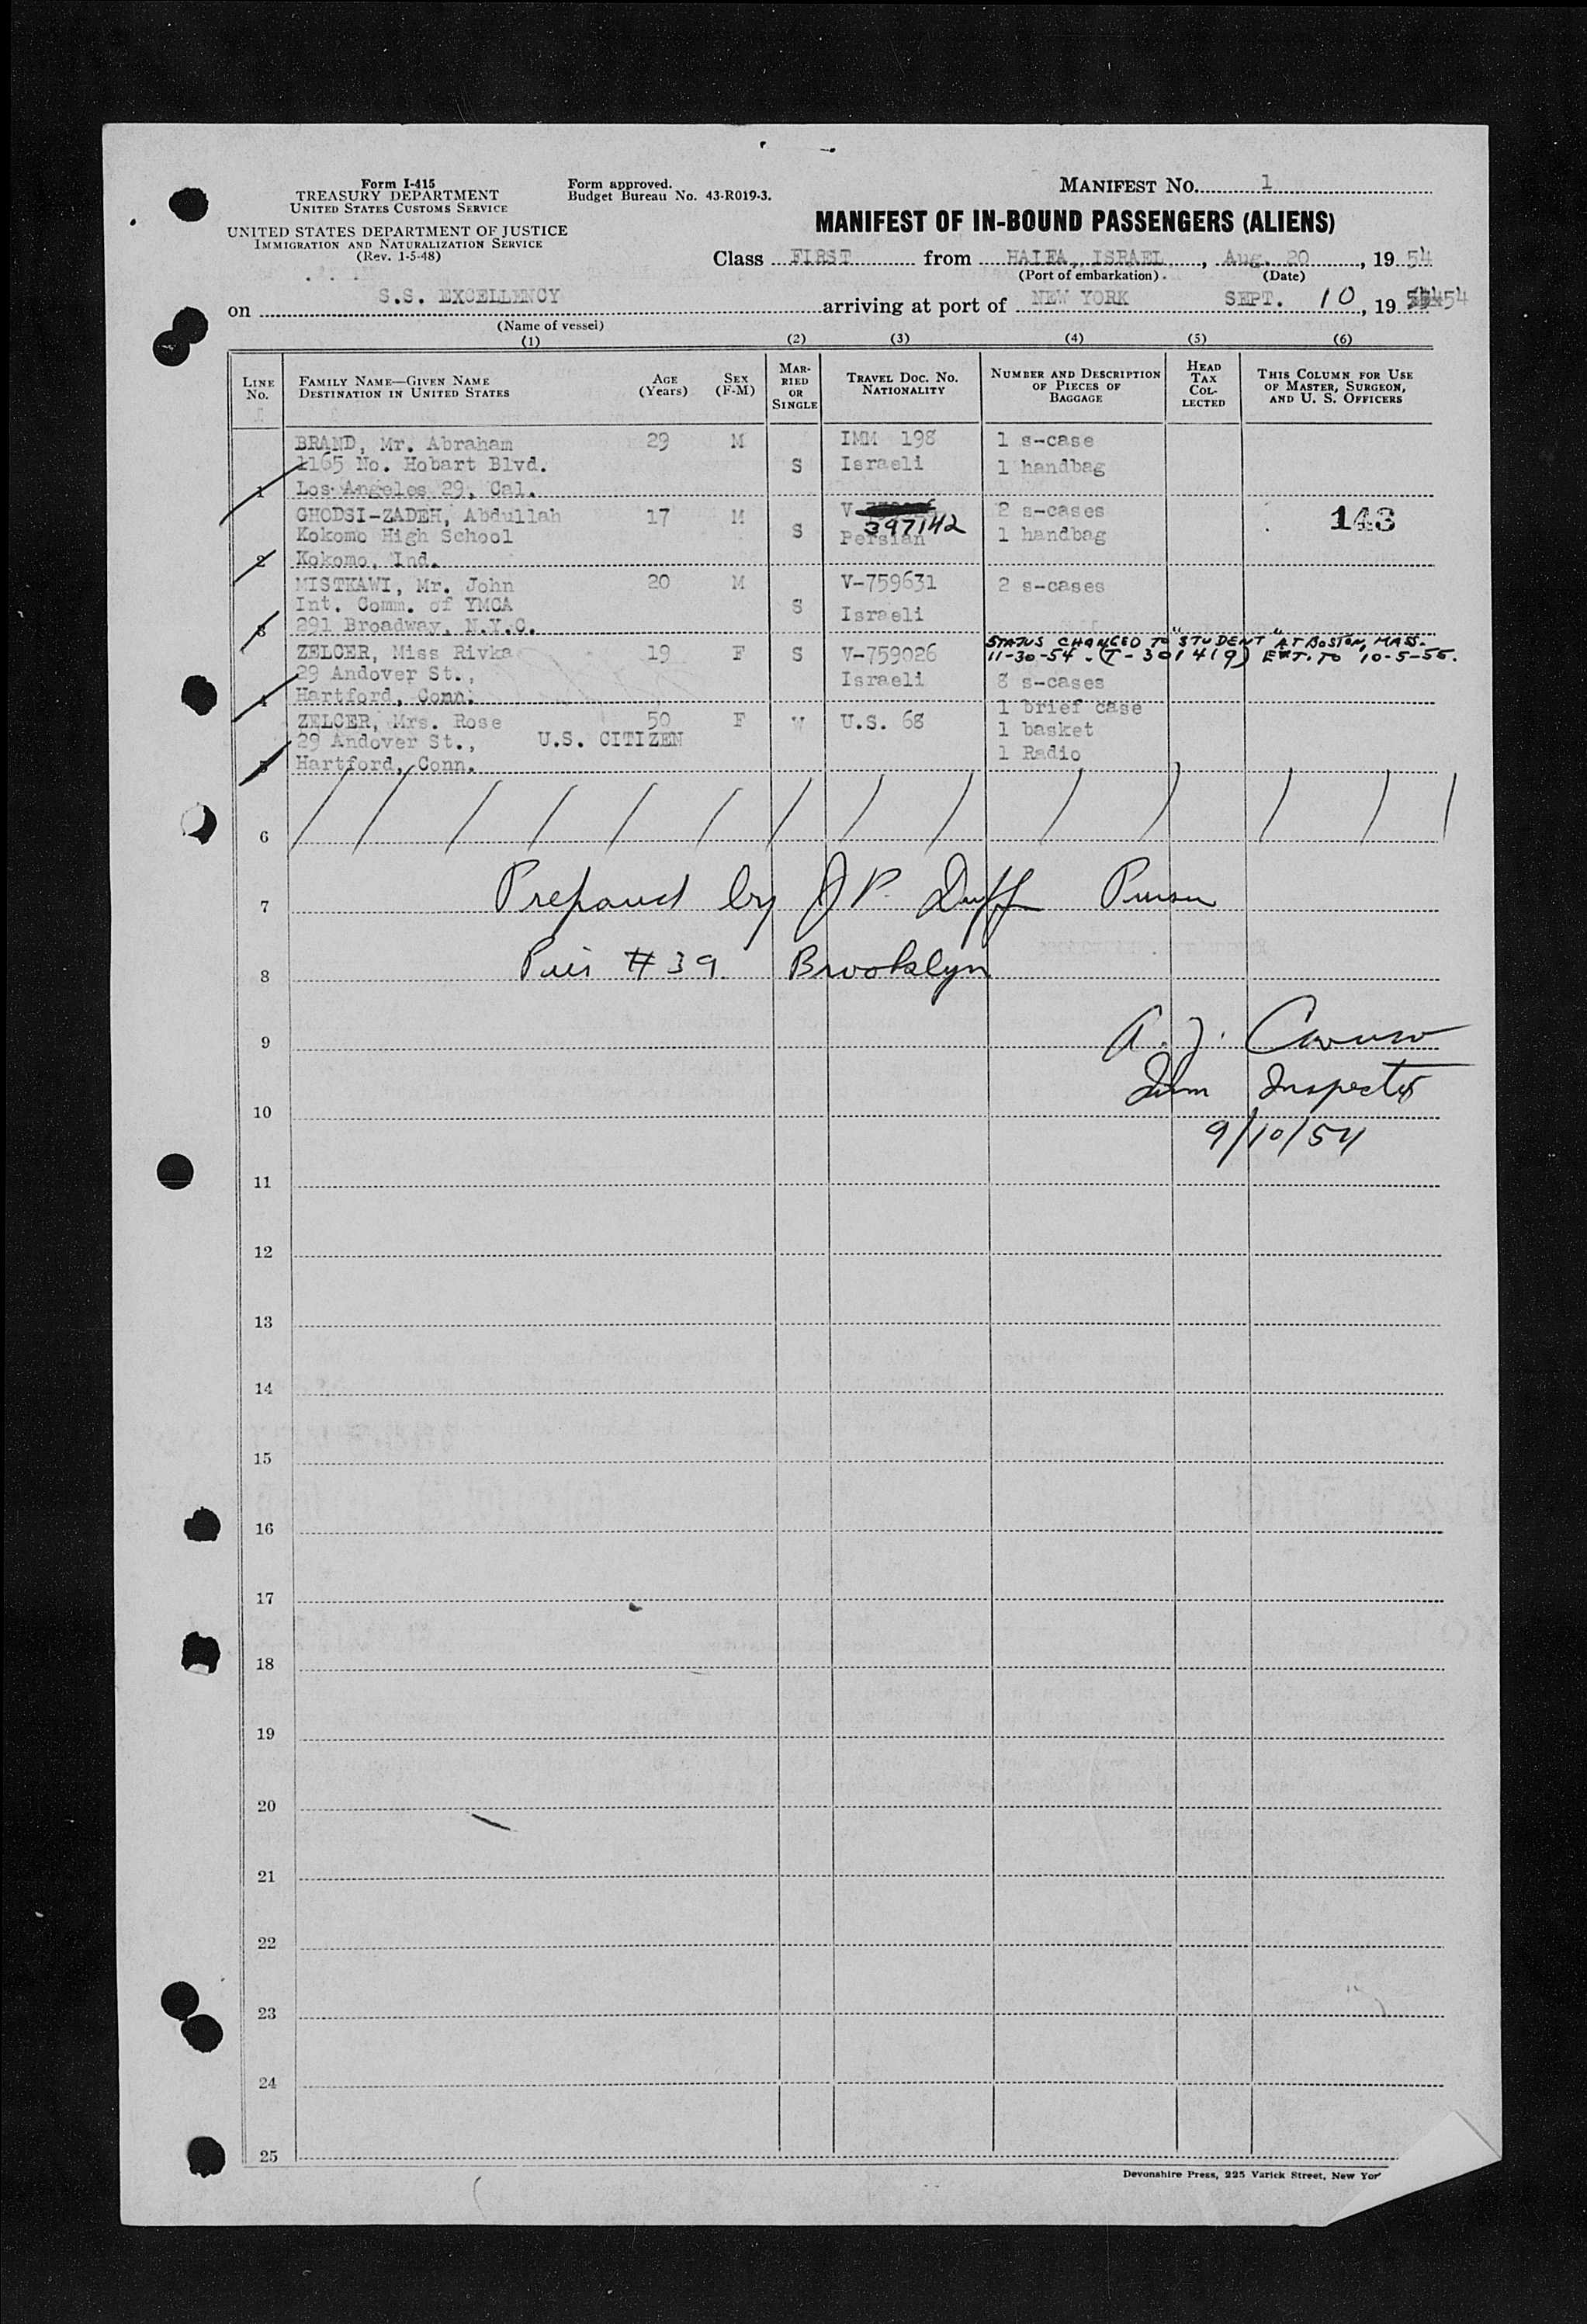 Form I-415
TREASURY DEPARTMENT
UNITED STATES CUSTOMS SERVICE
UNITED STATES DEPARTMENT OF JUSTICE
IMMIGRATION AND NATURALIZATION SERVICE
(Rev. 1-5-48)
Form approved.
Budget Bureau No. 43-R019-3.
MANIFEST NO. 1
MANIFEST OF IN-BOUND PASSENGERS (ALIENS)
Class FIRST from HAIFA, ISRAEL, Aug. 20, 1954
(Port of embarkation) (Date)
on S.S. EXCELLENCY arriving at port of NEW YORK SEPT. 10, 19 54
(Name of vessel)
(1) (2) (3) (4) (5) (6)
LINE NO.
FAMILY NAME—GIVEN NAME
DESTINATION IN UNITED STATES
AGE (Years)
SEX (F-M)
MARRIED OR SINGLE
TRAVEL DOC. NO.
NATIONALITY
NUMBER AND DESCRIPTION OF PIECES OF BAGGAGE
HEAD TAX COLLECTED
THIS COLUMN FOR USE OF MASTER, SURGEON, AND U. S. OFFICERS
BRAND, Mr. Abraham 29 M IMM 198 1 s-case
1165 No. Hobart Blvd. S Israeli 1 handbag
1 Los Angeles 29, Cal.
GHODSI-ZADEH, Abdullah 17 M V- 397142 2 s-cases 143
Kokomo High School S Persian 1 handbag
2 Kokomo, Ind.
MISTKAWI, Mr. John 20 M V-759631 2 s-cases
Int. Comm. of YMCA S Israeli
3 291 Broadway, N.Y.C.
STATUS CHANGED TO "STUDENT" AT BOSTON, MASS.
11-30-54. (T-301419) EXT. TO 10-5-55.
ZELCER, Miss Rivka 19 F S V-759026
29 Andover St., Israeli 8 s-cases
4 Hartford, Conn. 1 brief case
ZELCER, Mrs. Rose 50 F W U.S. 68 1 basket
29 Andover St., U.S. CITIZEN 1 Radio
5 Hartford, Conn.
6
7 Prepared by J P. Duff Purser
8 Pier # 39 Brooklyn
9 A. J. Caruso
10 Imm Inspector
9/10/54
11
12
13
14
15
16
17
18
19
20
21
22
23
24
25
Devonshire Press, 225 Varick Street, New Yor